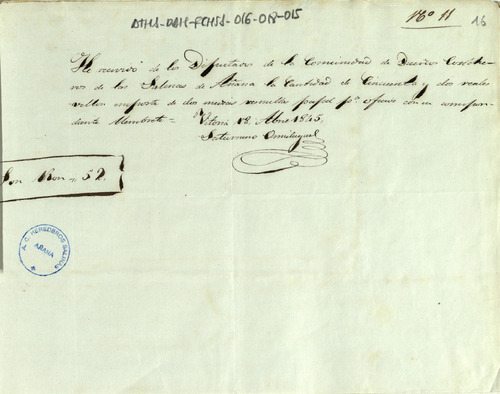 ATHA-DAH-FCHSS-016-018-015
Nº 11
16
He recivido de los Diputados de la Comunidad de Dueños
de las Salinas de Añana la Cantidad de Cincuenta y dos reales
vellon importe de dos medias papel pª oficios con su
Membrete = Vitoria 12 Abril 1845
Saturnino Ormilugue
Son Rvon 52
A. C. HEREDEROS SALINAS
AÑANA